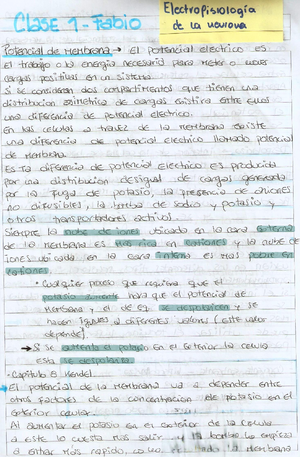 Clase 1 - Fabio
Electrofisiología
de la neurona
Potencial de Membrana → El potencial electrico es
el trabajo o la energia necesaria para meter o mover
cargas positivas en un sistema.
Si se consideran dos compartimentos que tienen una
distribucion asimetrica de cargas existira entre ellos
una diferencia de potencial electrico.
En las celulas a traves de la membrana existe
una diferencia de potencial electrico llamado potencial
de membrana.
Esta diferencia de potencial electrico es producida
por una distribucion desigual de cargas generada
por la fuga de potasio, la presencia de aniones
no difusibles, la bomba de sodio y potasio y
otros transportadores activos.
Siempre la nube de iones ubicada en la cara externa
de la membrana es mas rica en cationes y la nube de
iones ubicada en la cara interna es mas pobre en
cationes.
• Cualquier proceso que requiera que el
potasio aumente hara que el potencial de
membrana y el de eq. se despolaricen y se
hacen iguales a diferentes valores (este valor
depende).
→ Si se aumenta el potasio en el exterior la celula
esta se despolariza.
• Capitulo 6 Kendel.
El potencial de la membrana va a depender entre
otros factores de la concentracion de potasio en el
exterior celular.
Al aumentar el potasio en el exterior de la celula
a este le cuesta mas salir y la bomba lo empieza
a entrar mas rapido, la membrana